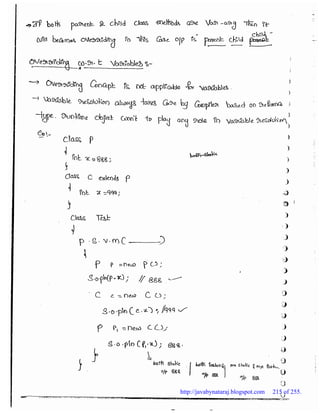 → If both parent & child class methods are Var-arg Then it
will becomes overriding in This Case o/p is parent child
child
Overriding w.r.t Variables :-
→ Overriding Concept is not applicable for variables.
→ Variable resolution always takes Care by Compiler based on reference
type. Runtime object can't to play any role in Variable resolution.
Eg:-
class P
{
int x = 888;
}
class C extends P
{
int x = 999;
}
class Test
{
p.s.v.m( )
{
P p = new P();
S.o.pln(p.x); // 888
C c = new C();
S.o.pln(c.x); // 999
P p1 = new C();
S.o.pln(p1.x); 888.
}
}
both static
o/p 888
o/p 888
o/p 888
http://javabynataraj.blogspot.com 215 of 255.